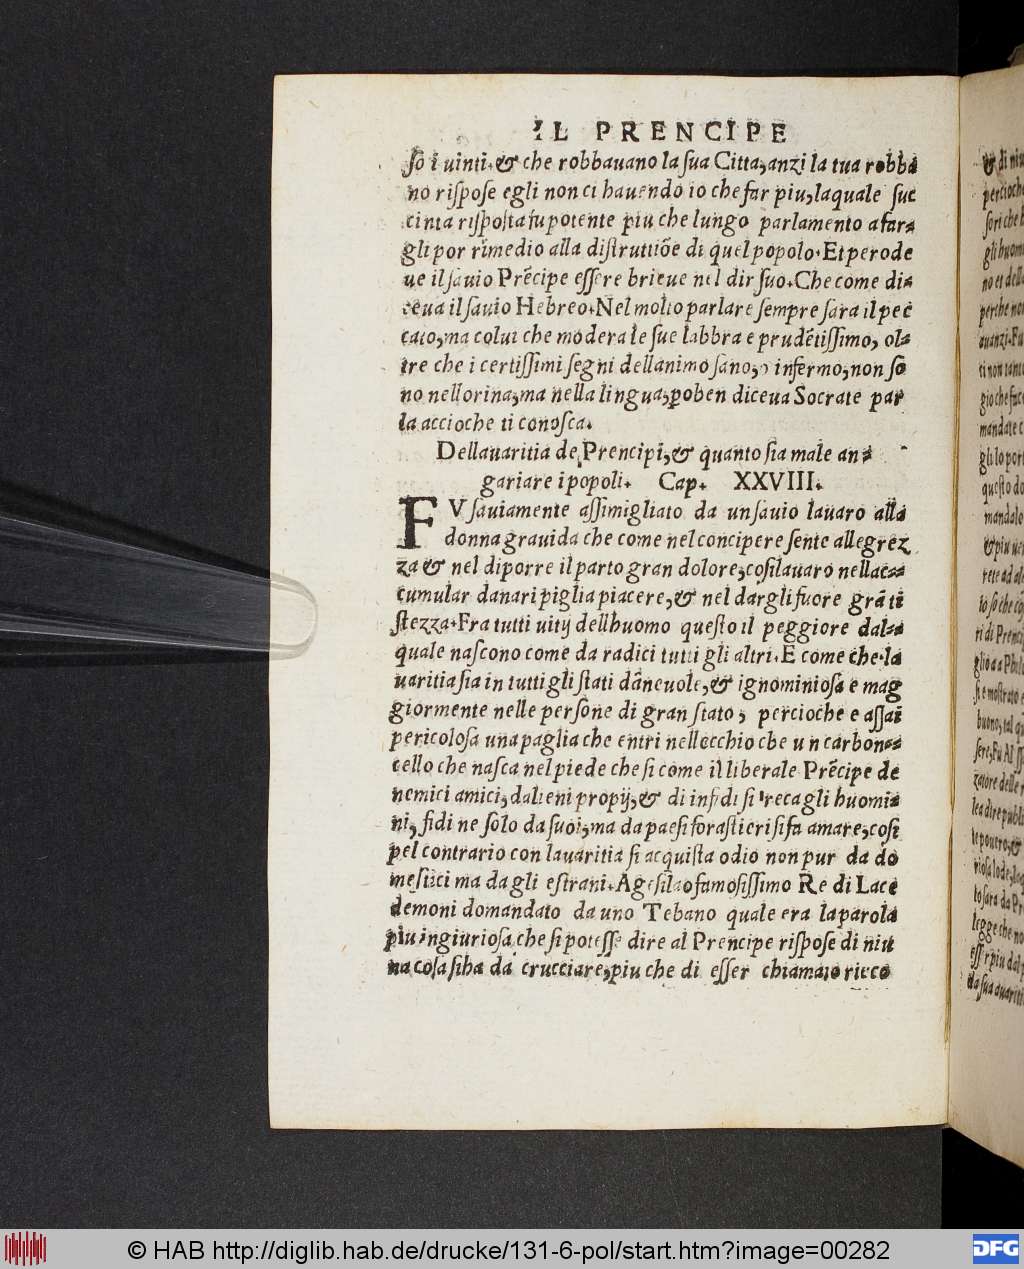 IL PRENCIPE
so i uinti, & che robbauano la sua Citta, anzi la tua robba
no rispose egli non ci hauendo io che far piu, laquale suc
cinta risposta fu potente piu che lungo parlamento a far⸗
gli por rimedio alla distruttiõe di quel popolo. Et pero de
ue il sauio Prẽcipe essere brieue nel dir suo. Che come di⸗
ceua il sauio Hebreo. Nel molto parlare sempre sara il pec
cato, ma colui che modera le sue labbra e prudẽtissimo, ol⸗
tre che i certissimi segni dellanimo sano, o infermo, non so
no nellorina, ma nella lingua, poben diceua Socrate par
la accioche ti conosca.
Dellauaritia de Prencipi, & quanto sia male an⸗
gariare i popoli. Cap. XXVIII.
FV sauiamente assimigliato da un sauio lauaro alla
donna grauida che come nel concipere sente allegrez
za & nel diporre il parto gran dolore, cosi lauaro nellac⸗
cumular danari piglia piacere, & nel dargli fuore grã ti
stezza. Fra tutti uitij dellhuomo questo il peggiore dal⸗
quale nascono come da radici tutti gli altri. E come che la
uaritia sia in tutti gli stati dãneuole, & ignominiosa e mag
giormente nelle persone di gran stato, percioche e assai
pericolosa una paglia che entri nellocchio che un carbon⸗
cello che nasca nel piede che si come il liberale Prẽcipe de
nemici amici, dalieni propij, & di infidi si reca gli huomi⸗
ni, fidi ne solo da suoi, ma da paesi forastieri si fa amare, cosi
pel contrario con lauaritia si acquista odio non pur da do
mestici ma da gli estrani. Agesilao famosissimo Re di Lace
demoni domandato da uno Tebano quale era la parola
piu ingiuriosa che si potesse dire al Prencipe rispose di niu
na cosa si ha da crucciare, piu che di esser chiamato ricco
& di niu
percioche
gli huomi
no et dell
perche no
auanzi. Fu
ti non tant
gio che fac
mandate c
gli lo port
questo do
mandalo
& piu
rete ad al
to so che co
ri di Prenc
si e mostrato
buono, tal q
zaore delle r
lea dire publi
to sara da Pr
legge che no
esser piu dal
da sua auariti
© HAB http://diglib.hab.de/drucke/131-6-pol/start.htm?image=00282
DFG